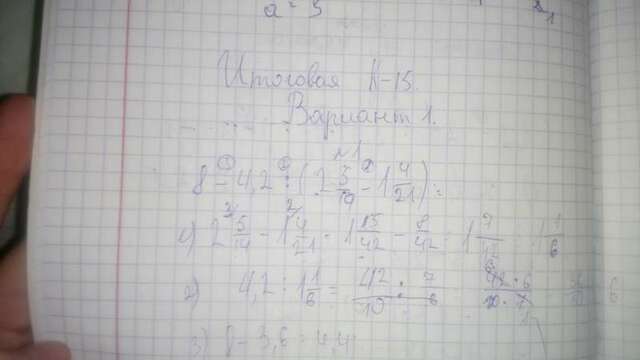 a = 3
Итоговая К-15.
Вариант 1.
№1
8 - 4,2 : (2 5/14 - 1 4/21) =
1) 2 5/14 - 1 4/21 = 1 15/42 - 8/42 = 1 7/42 = 1 1/6
2) 4,2 : 1 1/6 = 42/10 : 7/6 = 42 · 6 / 10 · 7
3) 8 - 3,6 = 4,4